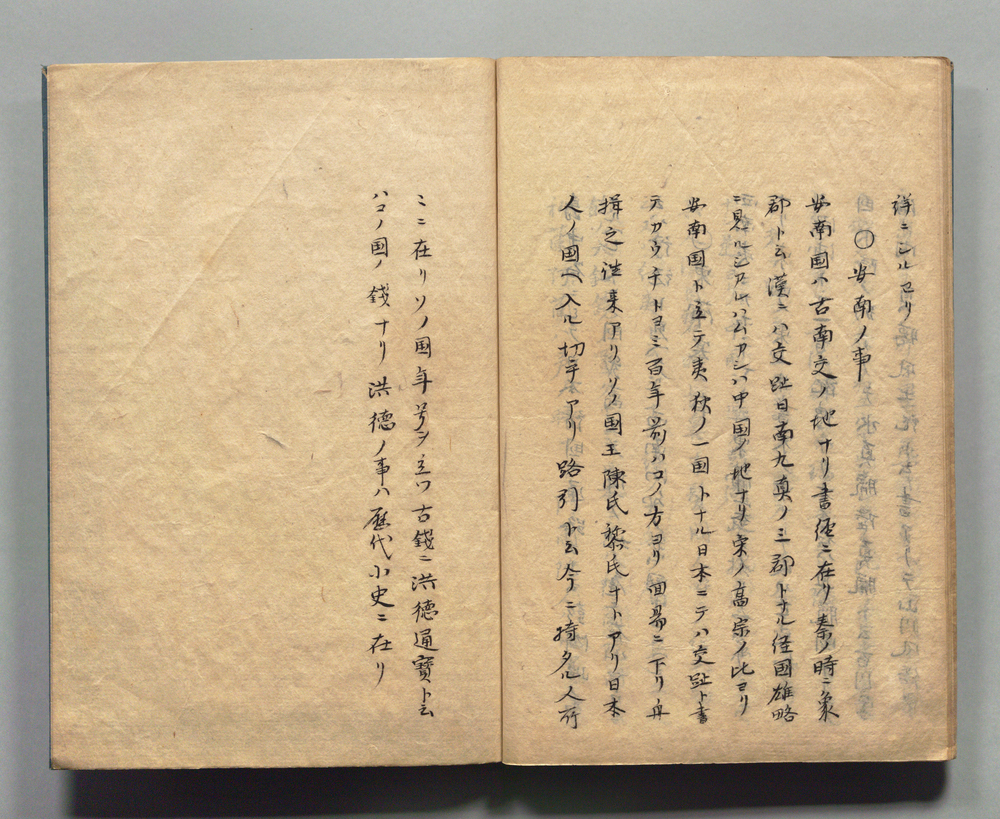 詳ニシルセリ
〇安南ノ事
安南国ハ古南交ノ地ナリ書経ニ在リ秦ノ時ニ象
郡ト云漢ニハ交趾日南九真ノ三郡トナル経国雄略
ニ見ルシアレハムカシハ中国ノ地ナリ宋ノ高宗ノ比ヨリ
安南国ト立テ夷狄ノ一国トナル日本ニテハ交趾ト書
テカウチトヨミ百年前ハコノ方ヨリ回易ニ下リ舟
揖之往来アリソノ国王陳氏黎氏ナトアリ日本
人ノ国ヘ入ル切手アリ路引ト云今ニ持タル人所
ミニ在リソノ国年号ヲ立ツ古錢ニ洪徳通寶ト云
ハコノ国ノ錢ナリ 洪徳ノ事ハ歴代小史ニ在リ